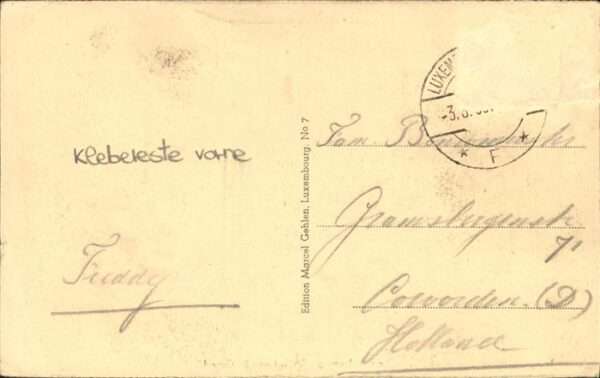 Klebereste vorne
Freddy
Edition Marcel Gehlen, Luxembourg. No 7
LUXEM
3. 8.
* F *
Fam.
71
Coevorden. (D)
Holland